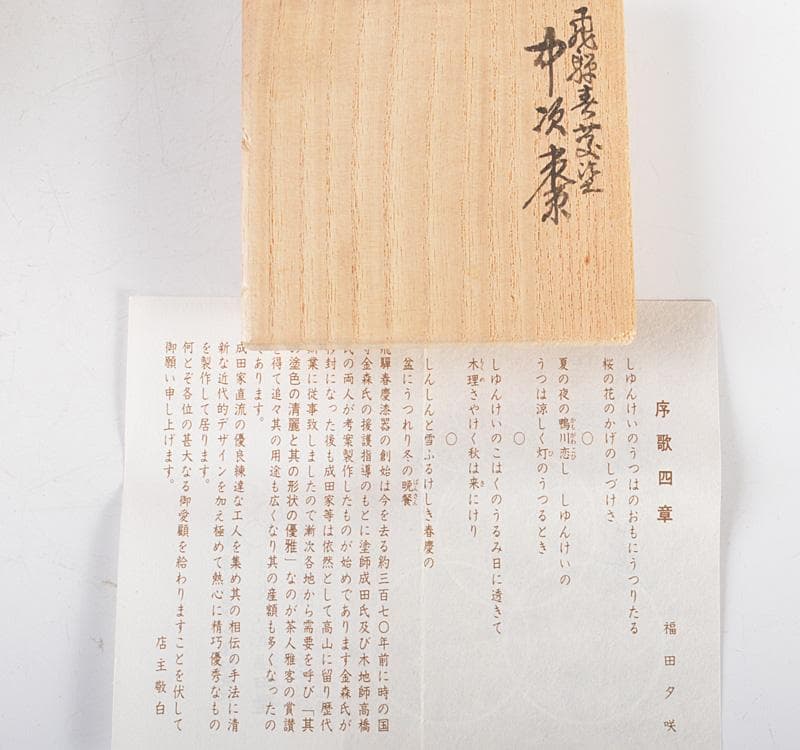 飛騨春慶塗
中次棗
序歌四章
福田夕咲
しゆんけいのうつはのおもにうつりたる
桜の花のかげのしづけさ
○
夏の夜の鴨川恋し しゆんけいの
うつは涼しく灯のうつるとき
○
しゆんけいのこはくのうるみ日に透きて
木理さやけく秋は来にけり
○
しんしんと雪ふるけしき春慶の
盆にうつれり冬の晩餐
飛騨春慶漆器の創始は今を去る約三百七〇年前に時の国
守金森氏の援護指導のもとに塗師成田氏及び木地師高橋
氏の両人が考案製作したものが始めであります金森氏が
封になった後も成田家等は依然として高山に留り歴代
業に従事致しましたので漸次各地から需要を呼び「其
の塗色の清麗と其の形状の優雅」なのが茶人雅客の賞讃
を得て追々其の用途も広くなり其の産額も多くなったの
であります。
成田家直流の優良練達な工人を集め其の相伝の手法に清
新な近代的デザインを加え極めて熱心に精巧優秀なもの
を製作して居ります。
何とぞ各位の甚大なる御愛顧を給わりますことを伏して
御願い申し上げます。
店主敬白